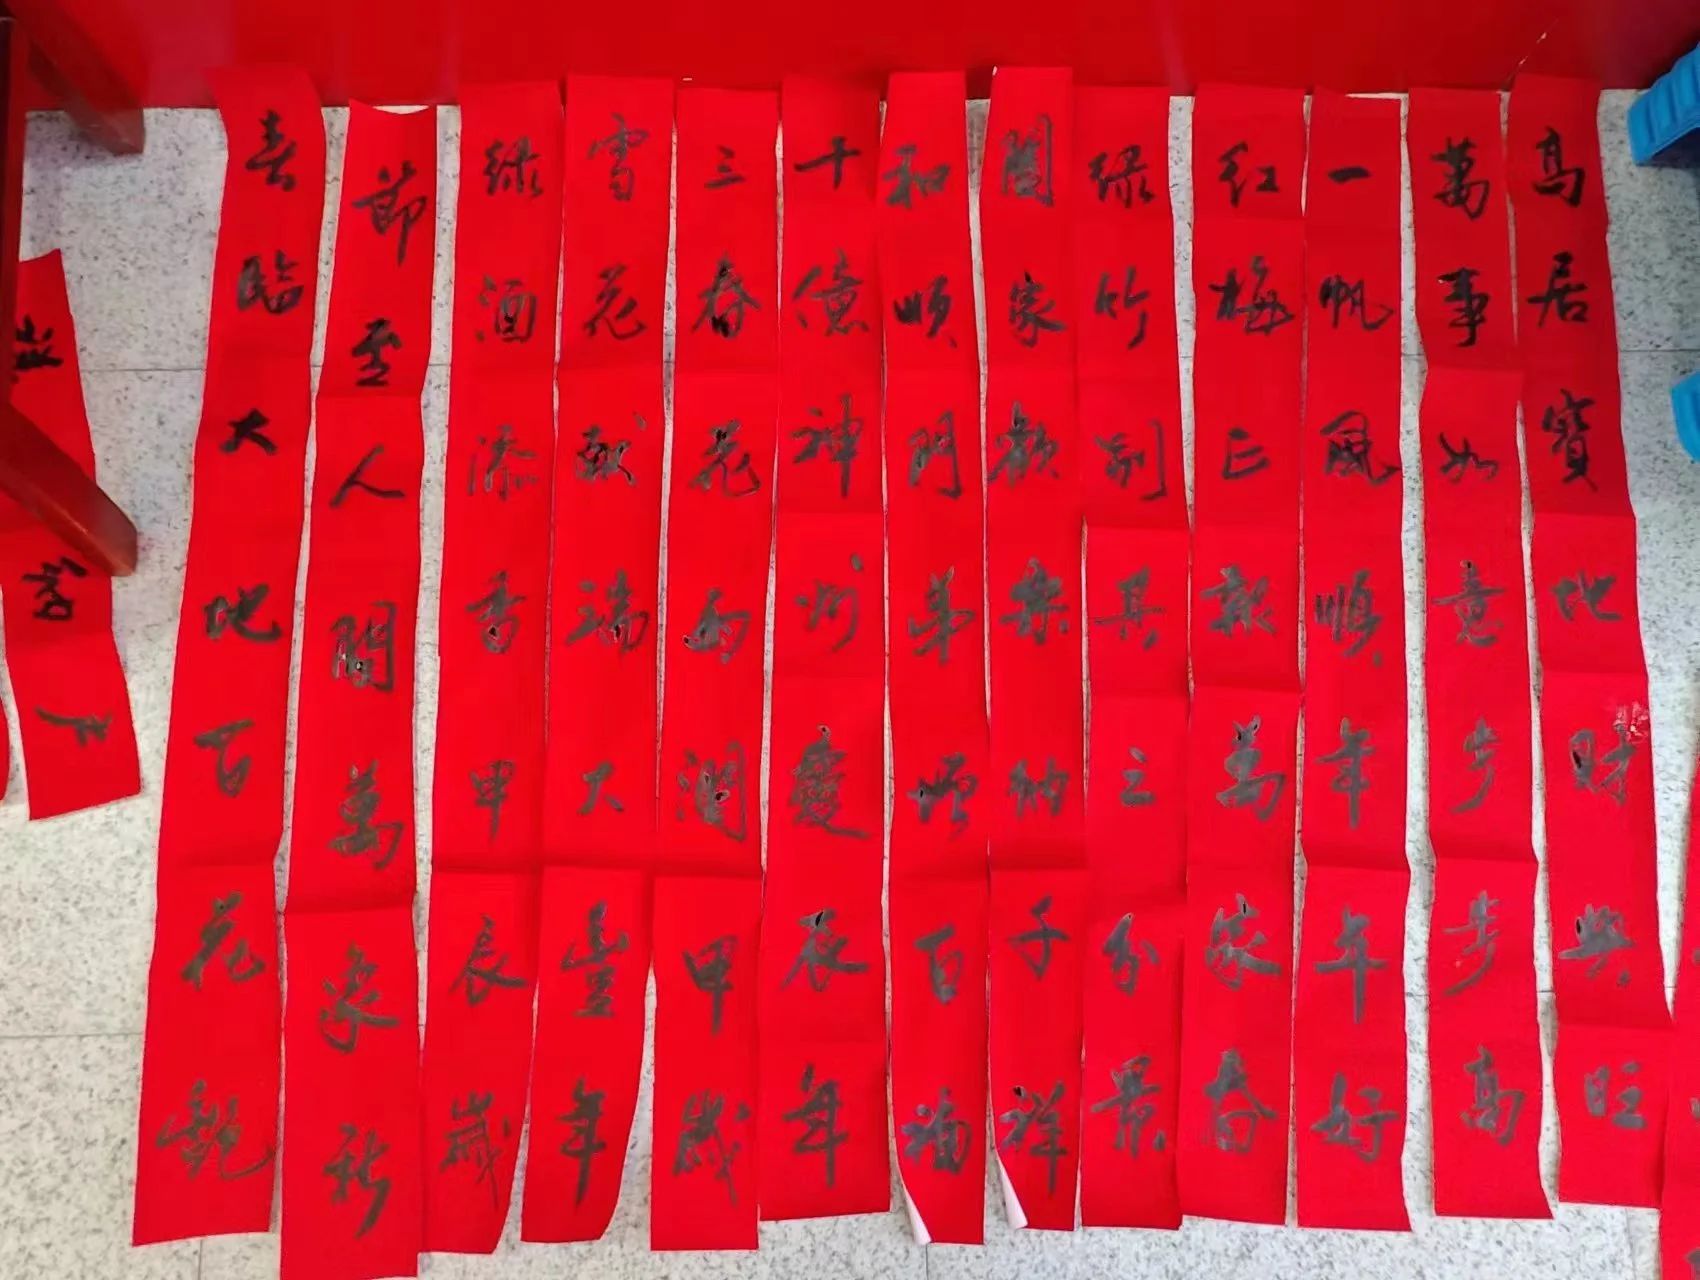 春臨大地百花艷
節至人間萬象新
绿酒添香甲辰歲
雪花献瑞大豐年
三春花雨潤甲歲
十億神州慶辰年
和顺門弟增百福
闔家歡樂纳千祥
绿竹别具三分景
红梅正報萬家春
一帆風順年年好
萬事如意步步高
高居寶地财興旺